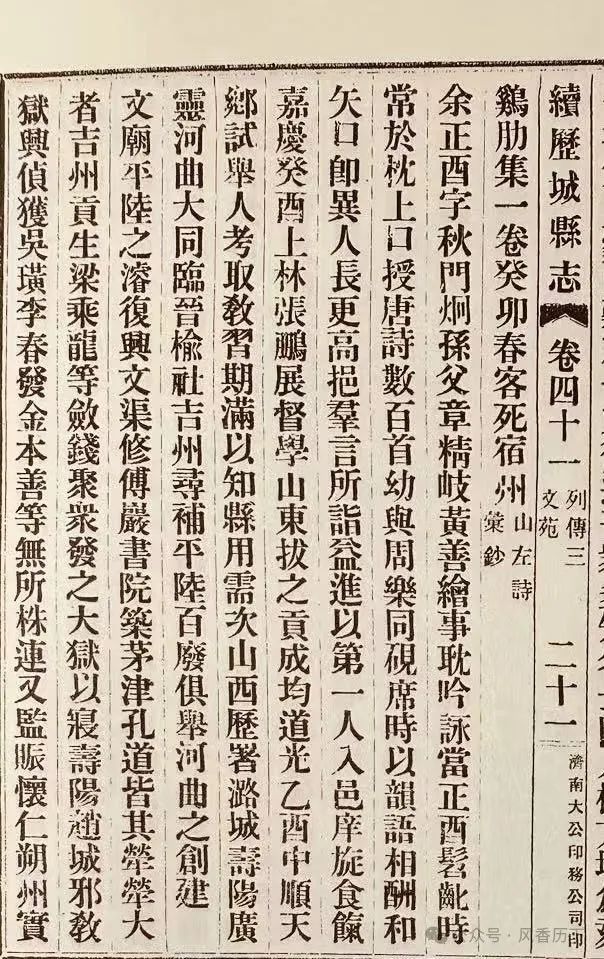 續歷城縣志 卷四十一 列傳三 文苑 二十一 濟南大公印務公司印
雞肋集一卷癸卯春客死宿州 山左詩彙鈔
余正酉字秋門炯孫父章精岐黃善繪事耽吟詠當正酉髫齓時
常於枕上口授唐詩數百首幼與周樂同硯席時以韻語相酬和
矢口卽異人長更高挹羣言所詣益進以第一人入邑庠旋食餼
嘉慶癸酉上林張鵬展督學山東拔之貢成均道光乙酉中順天
鄉試舉人考取敎習期滿以知縣用需次山西歷署潞城壽陽廣
靈河曲大同臨晉榆社吉州尋補平陸百廢俱舉河曲之創建
文廟平陸之濬復興文渠修傅巖書院築茅津孔道皆其犖犖大
者吉州貢生梁乘龍等斂錢聚衆發之大獄以寢壽陽趙城邪敎
獄興偵獲吳璜李春發金本善等無所株連又監賑懷仁朔州實
公众号·风香历